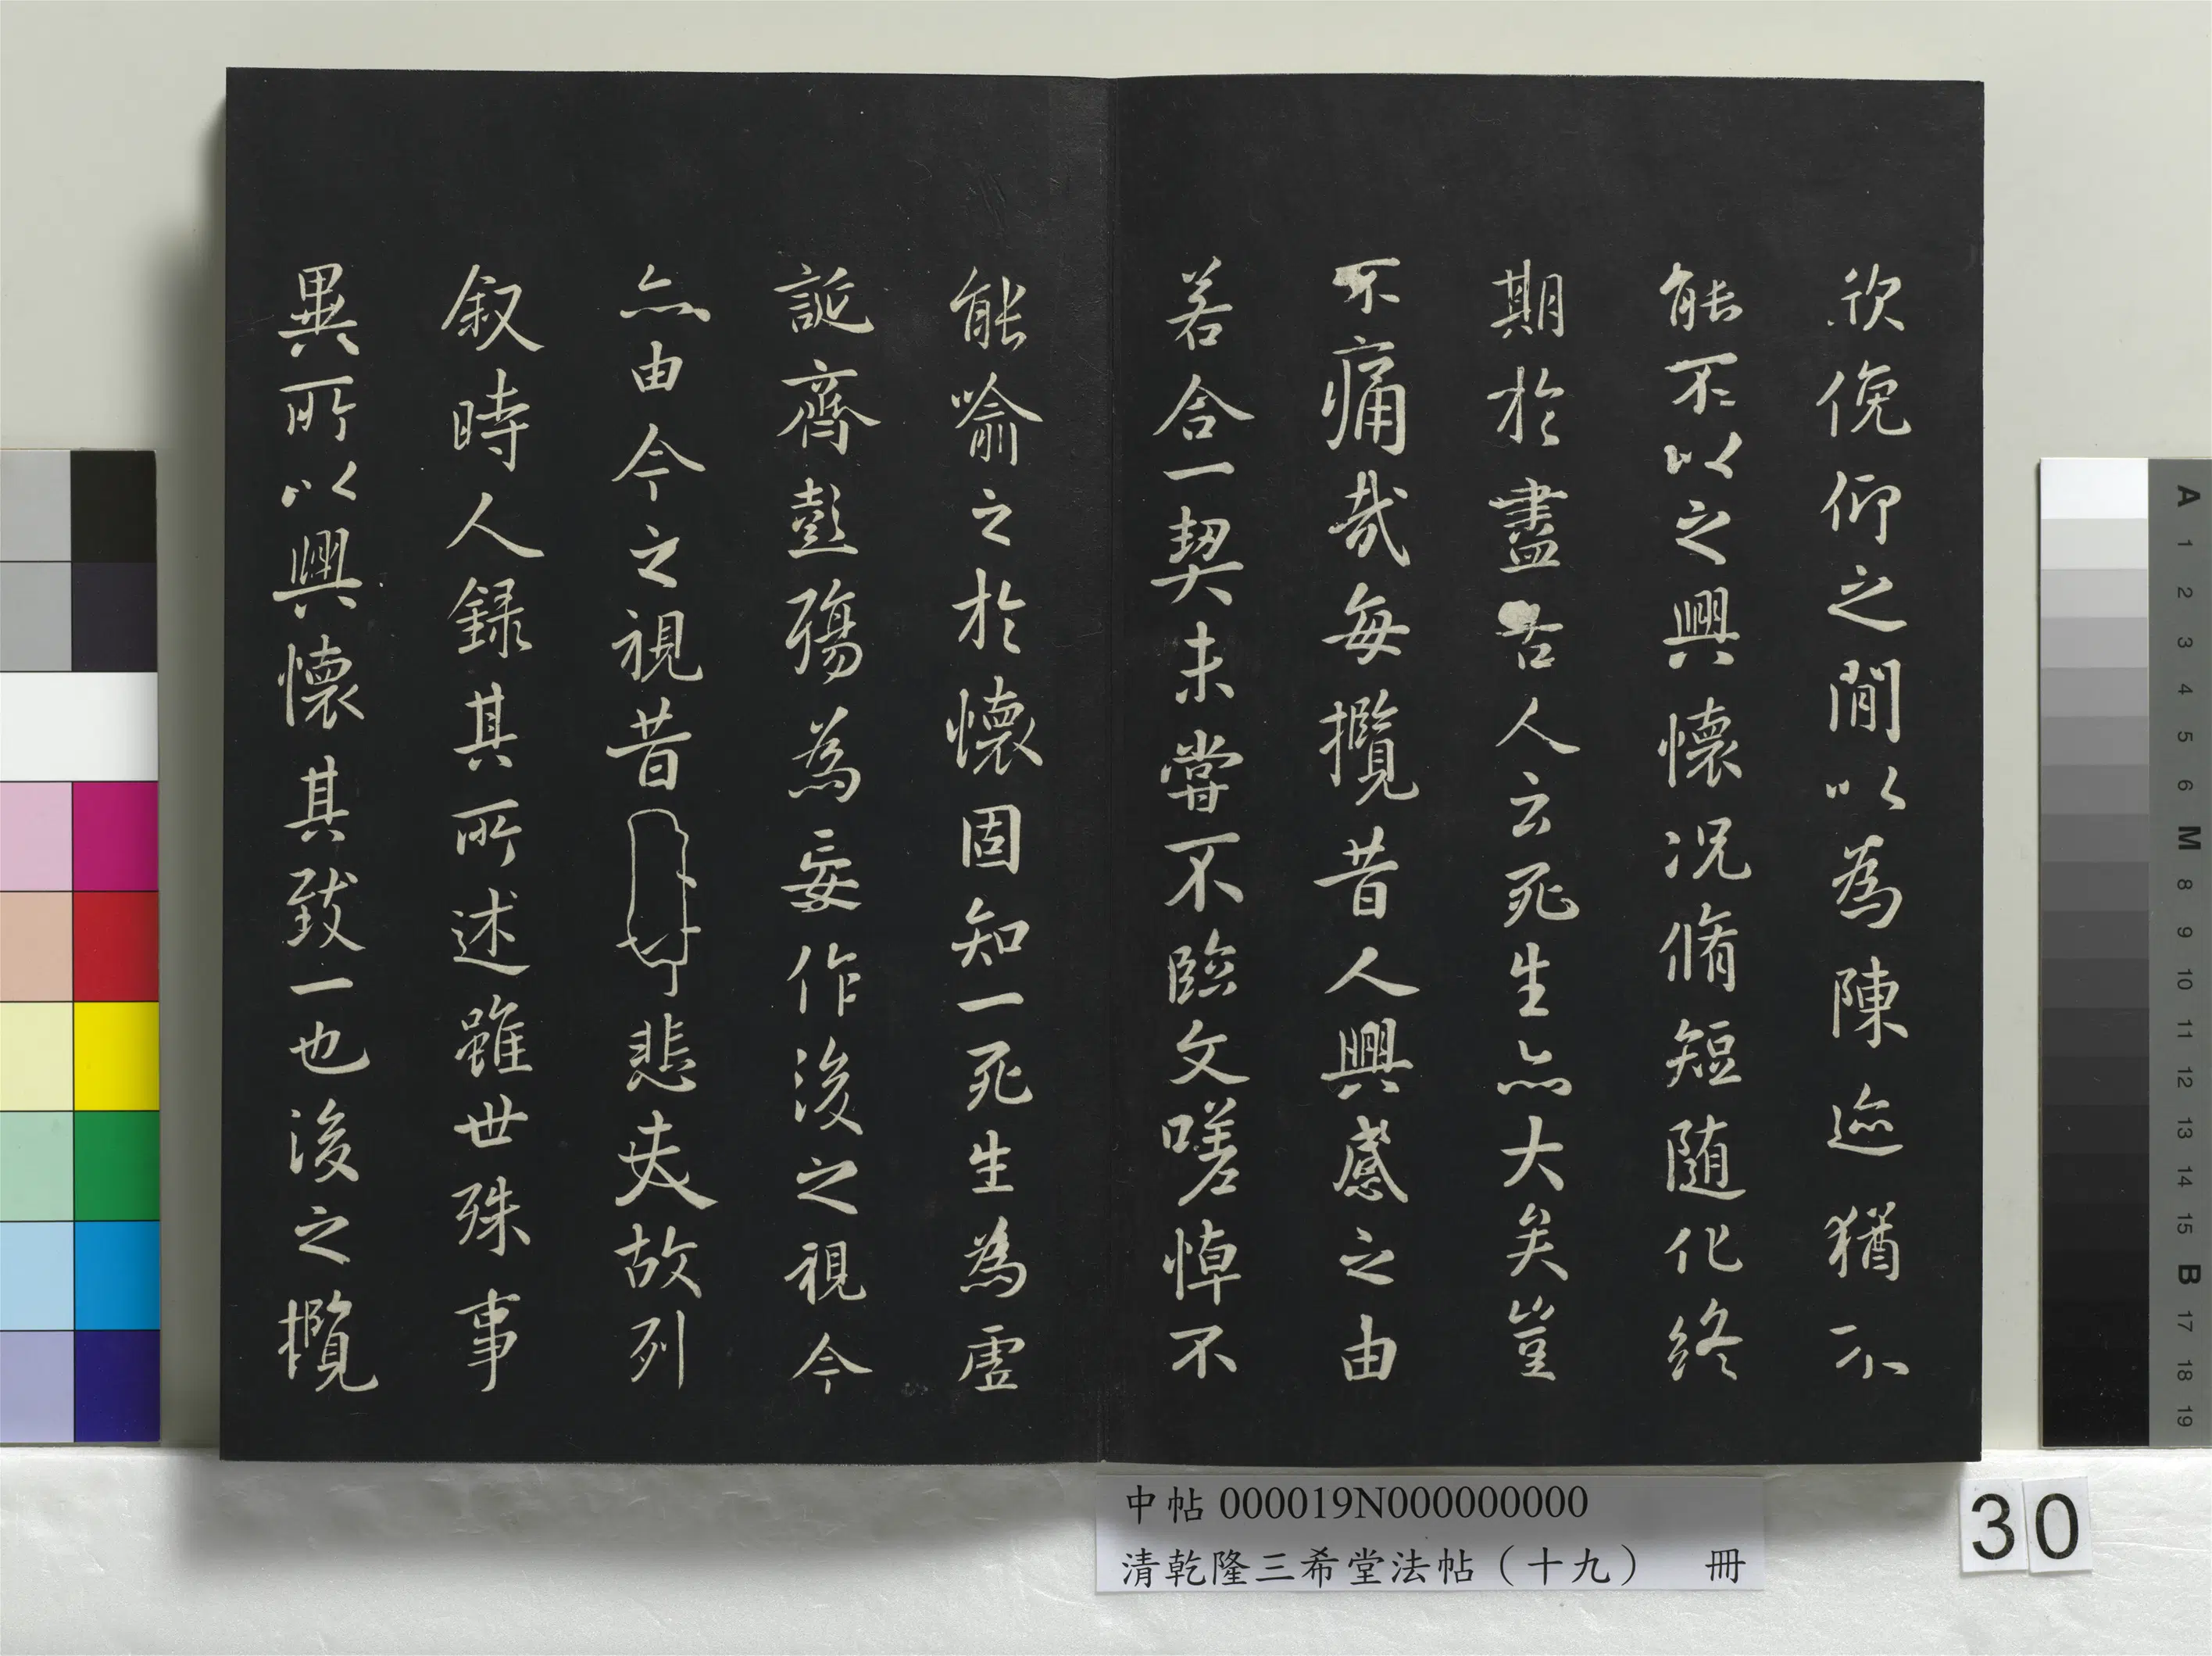 欣俛仰之閒以為陳迹猶不
能不以之興懷况脩短随化終
期於盡古人云死生亦大矣豈
不痛哉每攬昔人興感之由
若合一契未嘗不臨文嗟悼不
能喻之於懷固知一死生為虛
誕齊彭殤為妄作後之視今
亦由今之視昔悲夫故列
叙時人録其所述雖世殊事
異所以興懷其致一也後之攬
中帖 000019N000000000
清乾隆三希堂法帖（十九） 冊
30
A
1
2
3
4
5
6
M
8
9
10
11
12
13
14
15
B
17
18
19